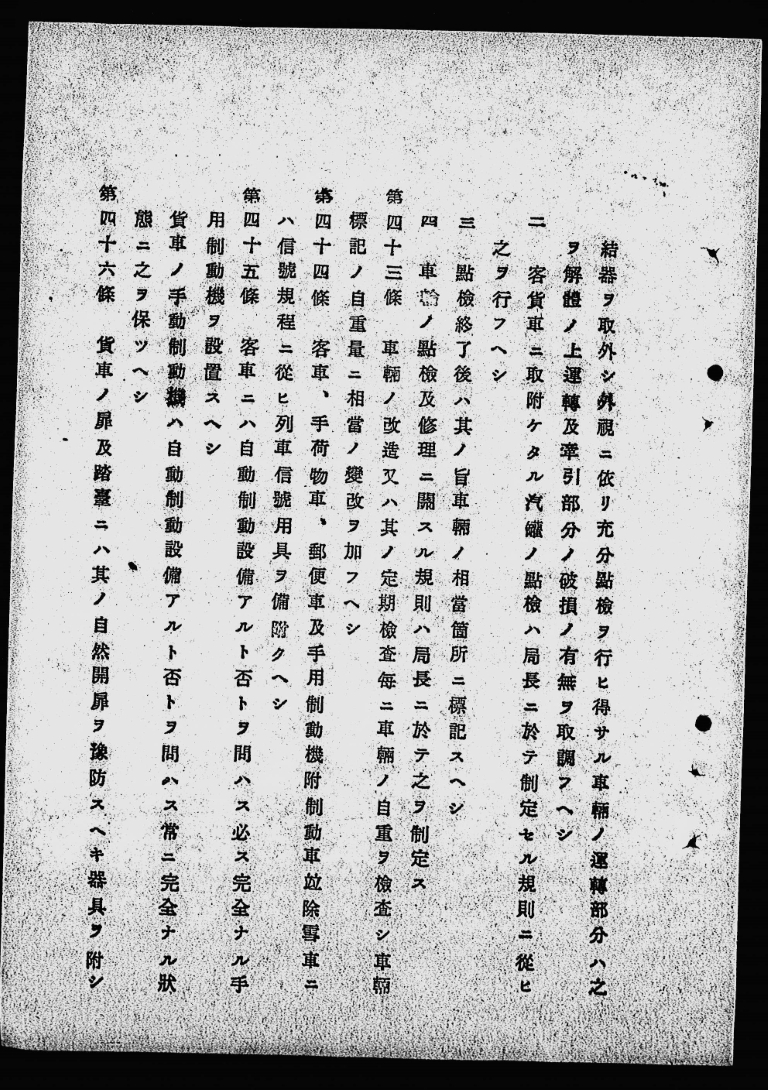 結器ヲ取外シ外視ニ依リ充分點檢ヲ行ヒ得サル車輛ノ運轉部分ハ之
ヲ解體ノ上運轉及牽引部分ノ破損ノ有無ヲ取調フヘシ
二　客貨車ニ取附ケタル汽罐ノ點檢ハ局長ニ於テ制定セル規則ニ從ヒ
之ヲ行フヘシ
三　點檢終了後ハ其ノ旨車輛ノ相當箇所ニ標記スヘシ
四　車輪ノ點檢及修理ニ關スル規則ハ局長ニ於テ之ヲ制定ス
第四十三條　車輛ノ改造又ハ其ノ定期檢查每ニ車輛ノ自重ヲ檢查シ車輛
標記ノ自重量ニ相當ノ變改ヲ加フヘシ
第四十四條　客車、手荷物車、郵便車及手用制動機附制動車竝除雪車ニ
ハ信號規程ニ從ヒ列車信號用具ヲ備附クヘシ
第四十五條　客車ニハ自動制動設備アルト否トヲ問ハス必ス完全ナル手
用制動機ヲ設置スヘシ
貨車ノ手動制動機ハ自動制動設備アルト否トヲ問ハス常ニ完全ナル狀
態ニ之ヲ保ツヘシ
第四十六條　貨車ノ扉及踏臺ニハ其ノ自然開扉ヲ豫防スヘキ器具ヲ附シ